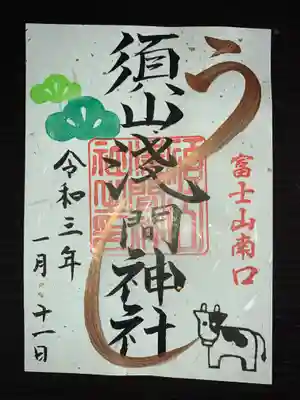 うし
富士山南口
須山浅間神社
令和三年
一月二十一日